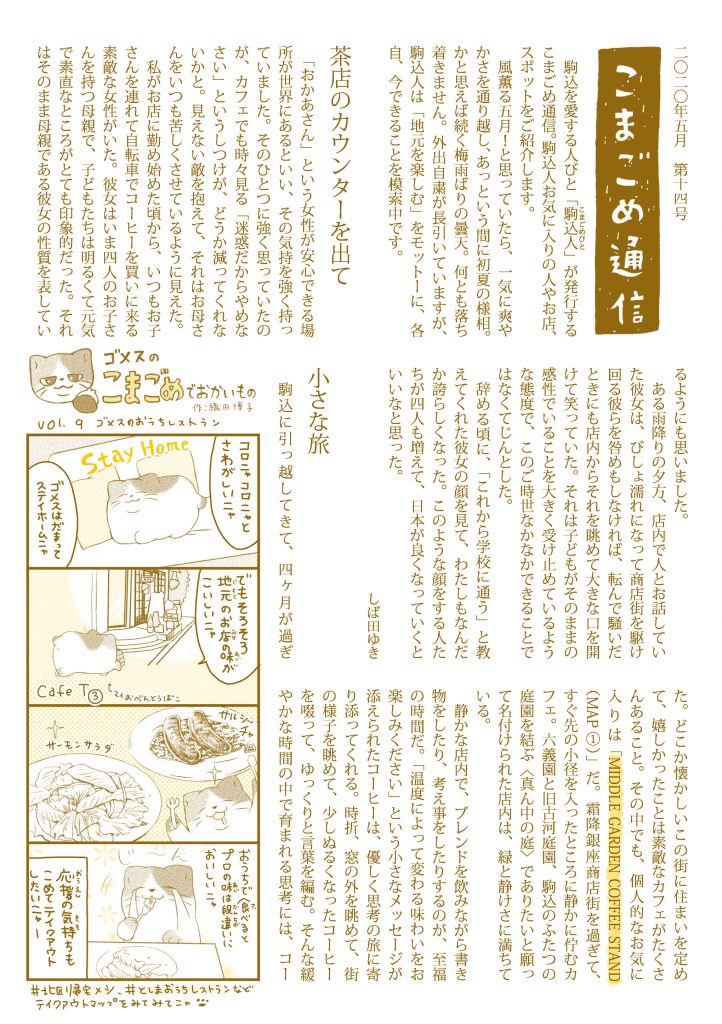 二〇二〇年五月　第十四号
こまごめ通信
駒込を愛する人びと「駒込人」が発行する
こまごめびと
こまごめ通信。駒込人お気に入りの人やお店、
スポットをご紹介します。
風薫る五月！と思っていたら、一気に爽や
かさを通り越し、あっという間に初夏の様相。
かと思えば続く梅雨ばりの曇天。何とも落ち
着きません。外出自粛が長引いていますが、
駒込人は「地元を楽しむ」をモットーに、各
自、今できることを模索中です。
茶店のカウンターを出て
「おかあさん」という女性が安心できる場
所が世界にあるといい、その気持を強く持っ
ていました。そのひとつに強く思っていたの
が、カフェでも時々見る「迷惑だからやめな
さい」というしつけが、どうか減ってくれな
いかと。見えない敵を抱えて、それはお母さ
んをいつも苦しくさせているように見えた。
私がお店に勤め始めた頃から、いつもお子
さんを連れて自転車でコーヒーを買いに来る
素敵な女性がいた。彼女はいま四人のお子さ
んを持つ母親で、子どもたちは明るくて元気
で素直なところがとても印象的だった。それ
はそのまま母親である彼女の性質を表してい
るようにも思いました。
ある雨降りの夕方、店内で人とお話してい
た彼女は、びしょ濡れになって商店街を駆け
回る彼らを咎めもしなければ、転んで騒いだ
ときにも店内からそれを眺めて大きな口を開
けて笑っていた。それは子どもがそのままの
感性でいることを大きく受け止めているよう
な態度で、このご時世なかなかできることで
はなくてじんとした。
辞める頃に、「これから学校に通う」と教
えてくれた彼女の顔を見て、わたしもなんだ
か誇らしくなった。このような顔をする人た
ちが四人も増えて、日本が良くなっていくと
いいなと思った。
しば田ゆき
小さな旅
駒込に引っ越してきて、四ヶ月が過ぎ
た。どこか懐かしいこの街に住まいを定め
て、嬉しかったことは素敵なカフェがたくさ
んあること。その中でも、個人的なお気に
入りは「MIDDLE GARDEN COFFEE STAND
（MAP①）」だ。霜降銀座商店街を過ぎて、
すぐ先の小径を入ったところに静かに佇むカ
フェ。六義園と旧古河庭園、駒込のふたつの
庭園を結ぶ〈真ん中の庭〉でありたいと願っ
て名付けられた店内は、緑と静けさに満ちて
いる。
静かな店内で、ブレンドを飲みながら書き
物をしたり、考え事をしたりするのが、至福
の時間だ。「温度によって変わる味わいをお
楽しみください」という小さなメッセージが
添えられたコーヒーは、優しく思考の旅に寄
り添ってくれる。時折、窓の外を眺めて、街
の様子を眺めて、少しぬるくなったコーヒー
を啜って、ゆっくりと言葉を編む。そんな緩
やかな時間の中で育まれる思考には、コー
ゴメスの
こまごめでおかいもの
作:織田博子
vol. 9 ゴメスのおうちレストラン
Stay Home
コロニャコロニャと
さわがしいニャ
ゴメスはだまって
ステイホームニャ
でもそろそろ
地元のお店の味が
こいしいニャ
Cafe T③
マイおべんとうばこ
サルシッチャ
サーモンサラダ
おうちで食べると
プロの味は段違いに
おいしいニャ
応援の気持ちも
こめてテイクアウト
したいニャー
#北区帰宅メシ、#としまおうちレストランなど
テイクアウトマップをみてみてニャ